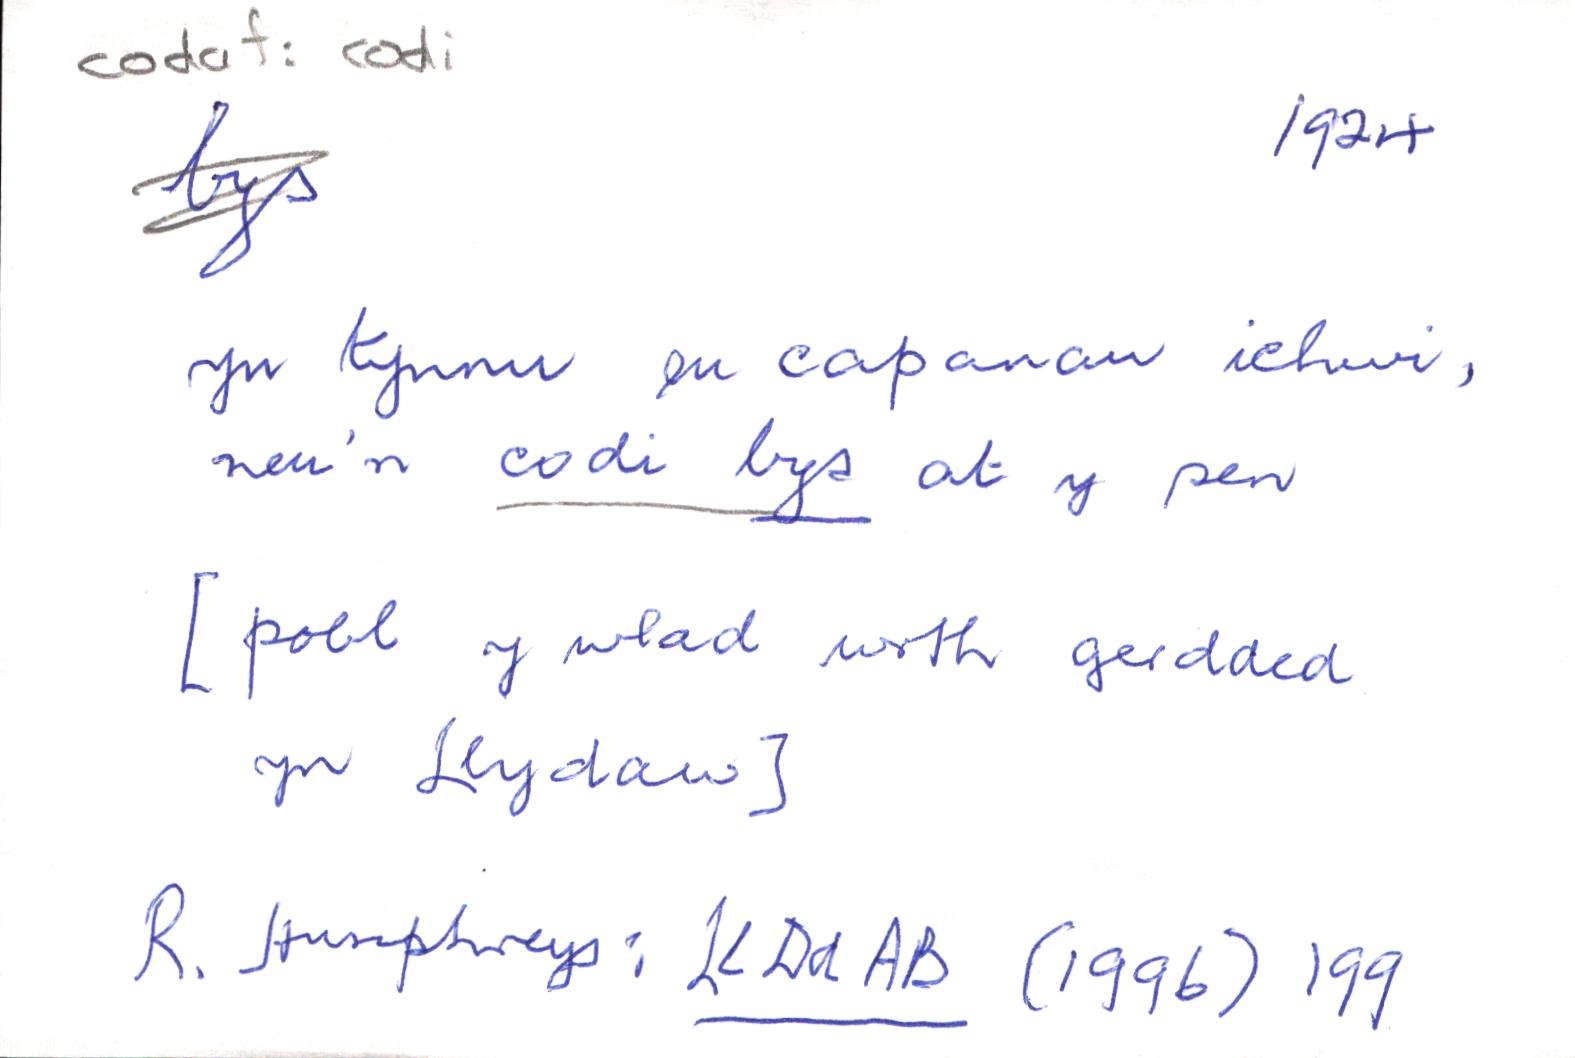 codaf: codi
bys
1924
yn tynnu eu capanau ichwi,
neu'n codi bys at y pen
[pobl y wlad wrth gerdded
yn Llydaw]
R. Humphreys: LlDdAB (1996) 199